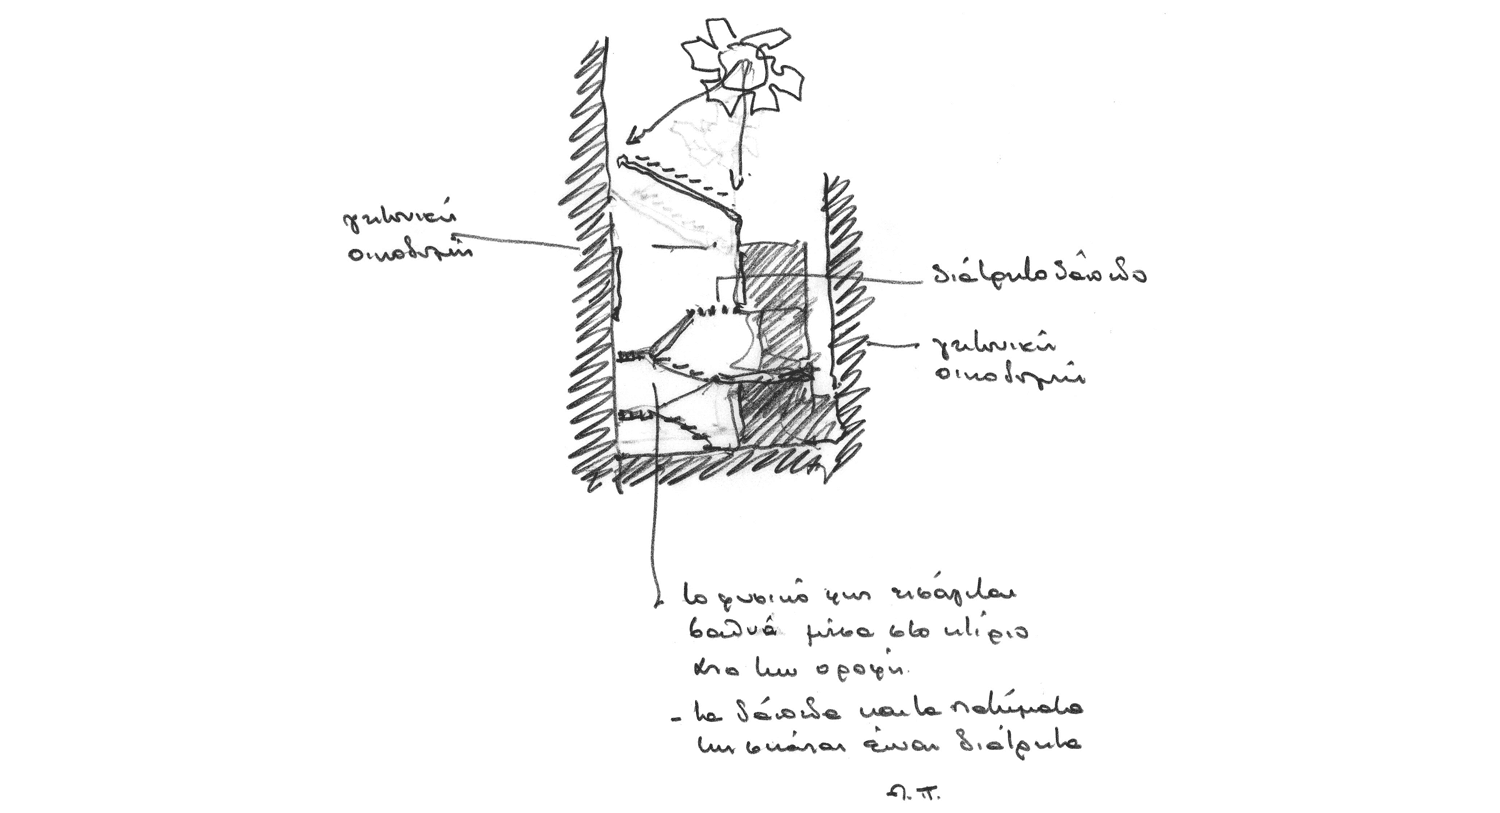 γειτονική
οικοδομή
διάτρητο δάπεδο
γειτονική
οικοδομή
το φυσικό φως εισάγεται
βαθυά μέσα στο κτίριο
απο την οροφή.
- τα δάπεδα και τα πατήματα
της σκάλας είναι διάτρητα
Λ.Π.